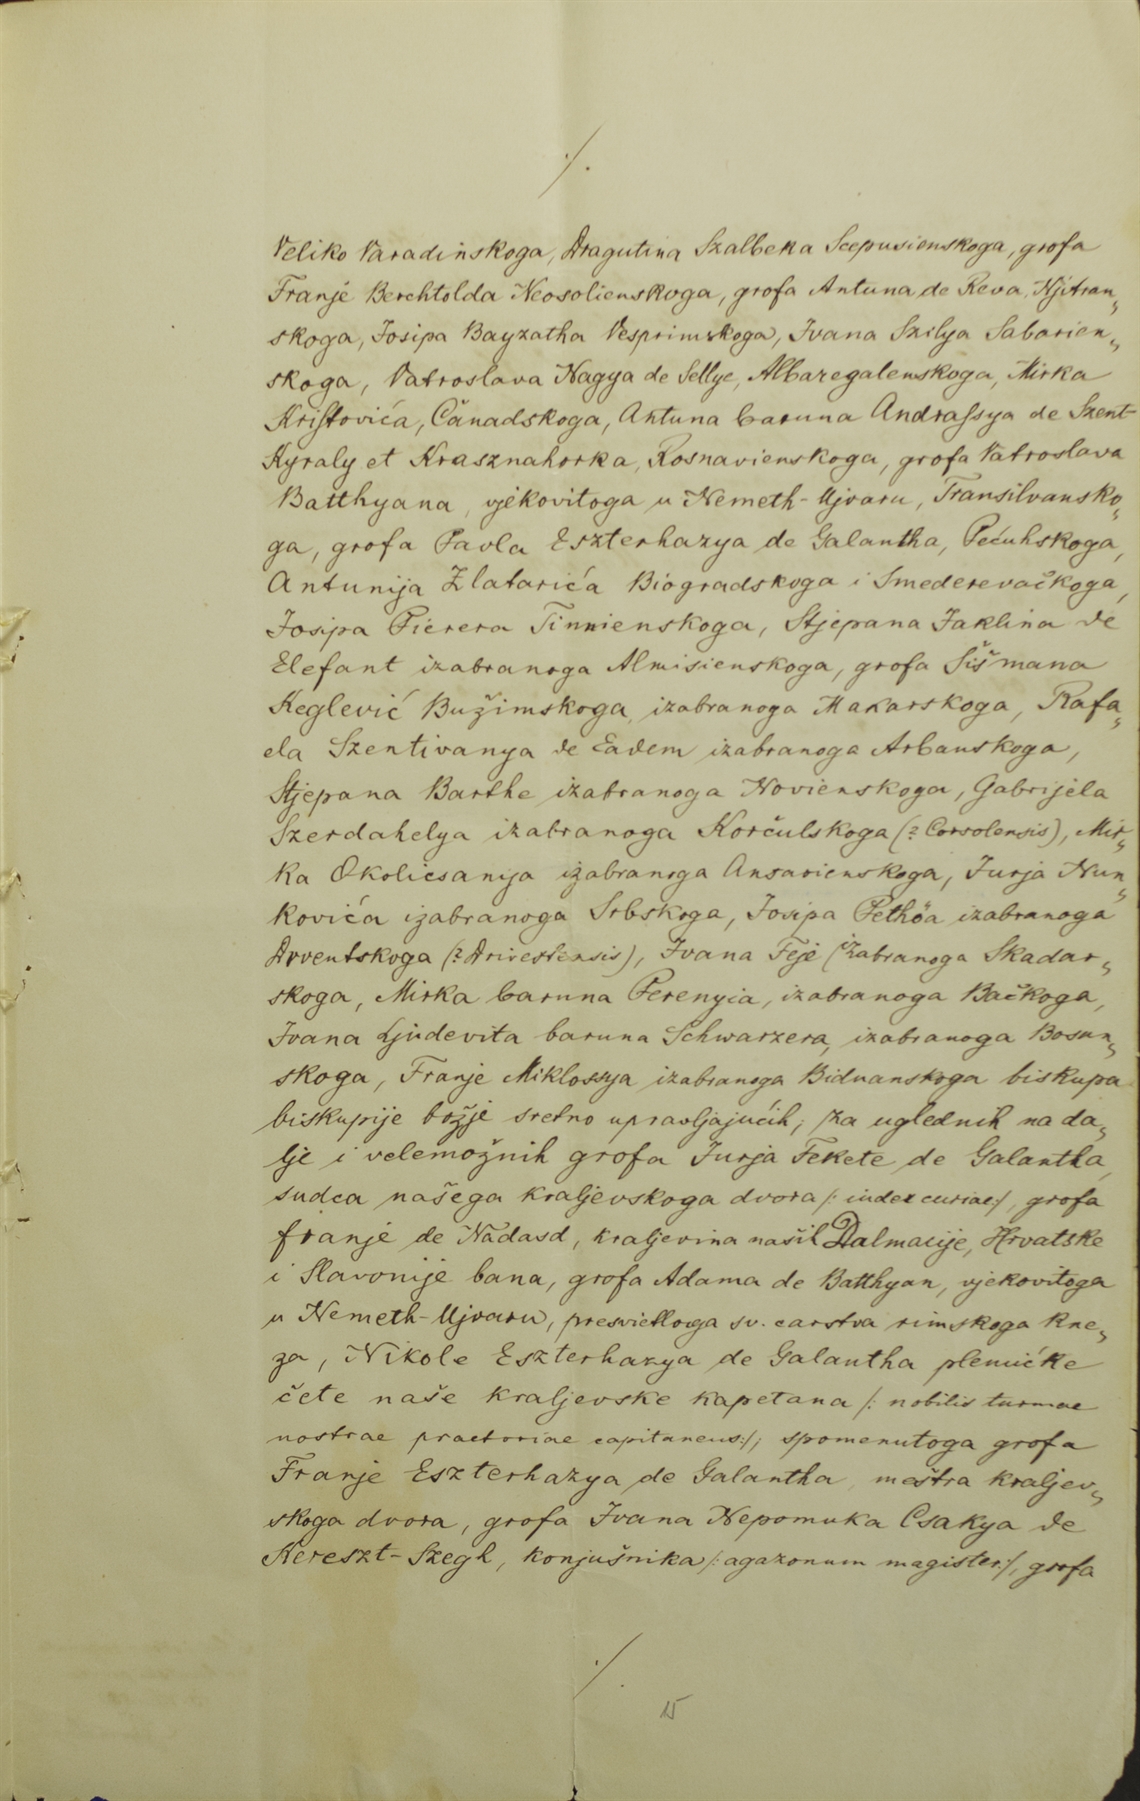 ./.
Veliko Varadinskoga, Dragutina Szalbeka Scepusienskoga, grofa
Franje Berchtolda Neosolienskoga, grofa Antuna de Reva, Njitran„
skoga, Josipa Bayzatha Vesprimskoga, Ivana Szilya Sabarien„
skoga, Vatroslava Nagya de Sellye, Albaregalenskoga, Mirka
Kristovića, Čanadskoga, Antuna baruna Andraſsya de Szent-
Kyraly et Krasznahorka, Rosnavienskoga, grofa Vatroslava
Batthyana, vjekovitoga u Nemeth-Ujvaru, Transilvansko„
ga, grofa Pavla Eszterhazya de Galantha, Pećuhskoga,
Antunija Zlatarića Biogradskoga i Smederevačkoga,
Josipa Pierera Tinnienskoga, Stjepana Jaklina de
Elefant izabranoga Almisienskoga, grofa Šišmana
Keglević Bužimskoga, izabranoga Makarskoga, Rafa„
ela Szentivanya de Eadem izabranoga Arbanskoga,
Stjepana Barthe izabranoga Novienskoga, Gabrijela
Szerdahelya izabranoga Korčulskoga (? Corsolensis), Mir„
ka Okolicsanija izabranoga Ansarienskoga, Jurja Nun„
kovića izabranoga Srbskoga, Josipa Pethöa izabranoga
Drventskoga (? Drivestensis), Ivana Feje izabranoga Skadar„
skoga, Mirka baruna Perenyia, izabranoga Bačkoga,
Ivana Ljudevita baruna Schwarzera, izabranoga Bosan„
skoga, Franje Miklossya izabranoga Biduanskoga biskupa
biskupije božje sretno upravljajućih; za uglednih na da„
lje i velemožnih grofa Jurja Fekete de Galantha,
sudca našega kraljevskoga dvora /: index curiae:/, grofa
franje de Nadasd, kraljevina naših Dalmacije, Hrvatske
i Slavonije bana, grofa Adama de Batthyan, vjekovitoga
u Nemeth-Ujvaru, presvietloga sv. carstva rimskoga kne„
za, Nikole Eszterhazya de Galantha plemićke
čete naše kraljevske kapetana /: nobilis turmae
nostrae praetoriae capitaneus:/; spomenutoga grofa
Franje Eszterhazya de Galantha, meštra kraljev„
skoga dvora, grofa Ivana Nepomuka Csakya de
Kereszt-Szegh, konjušnika /: agazonum magister:/, grofa
./.
15